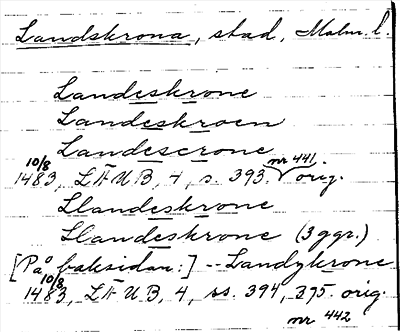 Landskrona, stad, Malm. l.
Landeskrone
Landeskroen
Landescrone
10/8 1483, LÄUB, 4, s. 393. nr 441. orig.
Llandeskrone
Llandeskrone (3 ggr.)
[På baksidan:] -- Landykrone
10/8 1483, LÄUB, 4, ss. 394, 375. orig.
nr 442